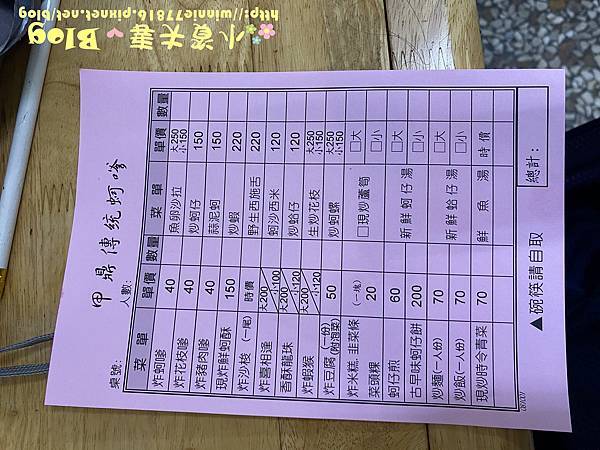 小資夫妻 Blog
http://winnie77816.pixnet.net/blog
甲鼎傳統蚵嗲
桌號:
人數:
菜單 單價 數量 菜單 單價 數量
炸蚵嗲 40 魚卵沙拉 大250 小150
炸花枝嗲 40 炒蚵仔 150
炸豬肉嗲 40 蒜泥蚵 150
現炸鮮蚵酥 150 炒蝦 220
炸沙梭(一尾) 時價 野生西施舌 220
炸喜相逢 大200 小100 蚵沙西米 120
香酥龍珠 大200 小120 炒蛤仔 120
炸蝦猴 大200 小120 生炒花枝 大250 小150
炸豆腐(一份)(附泡菜) 50 炒蚵螺 大250 小150
炸米糕, 韭菜條 (一塊) □現炒蘆筍 □大
菜頭粿 20 □小
蚵仔煎 60 新鮮蚵仔湯 □大
古早味蚵仔餅 200 □小
炒麵(一人份) 70 新鮮蛤仔湯 □大
炒飯(一人份) 70 □小
現炒時令青菜 70 鮮魚湯 時價
總計:
▲碗筷請自取